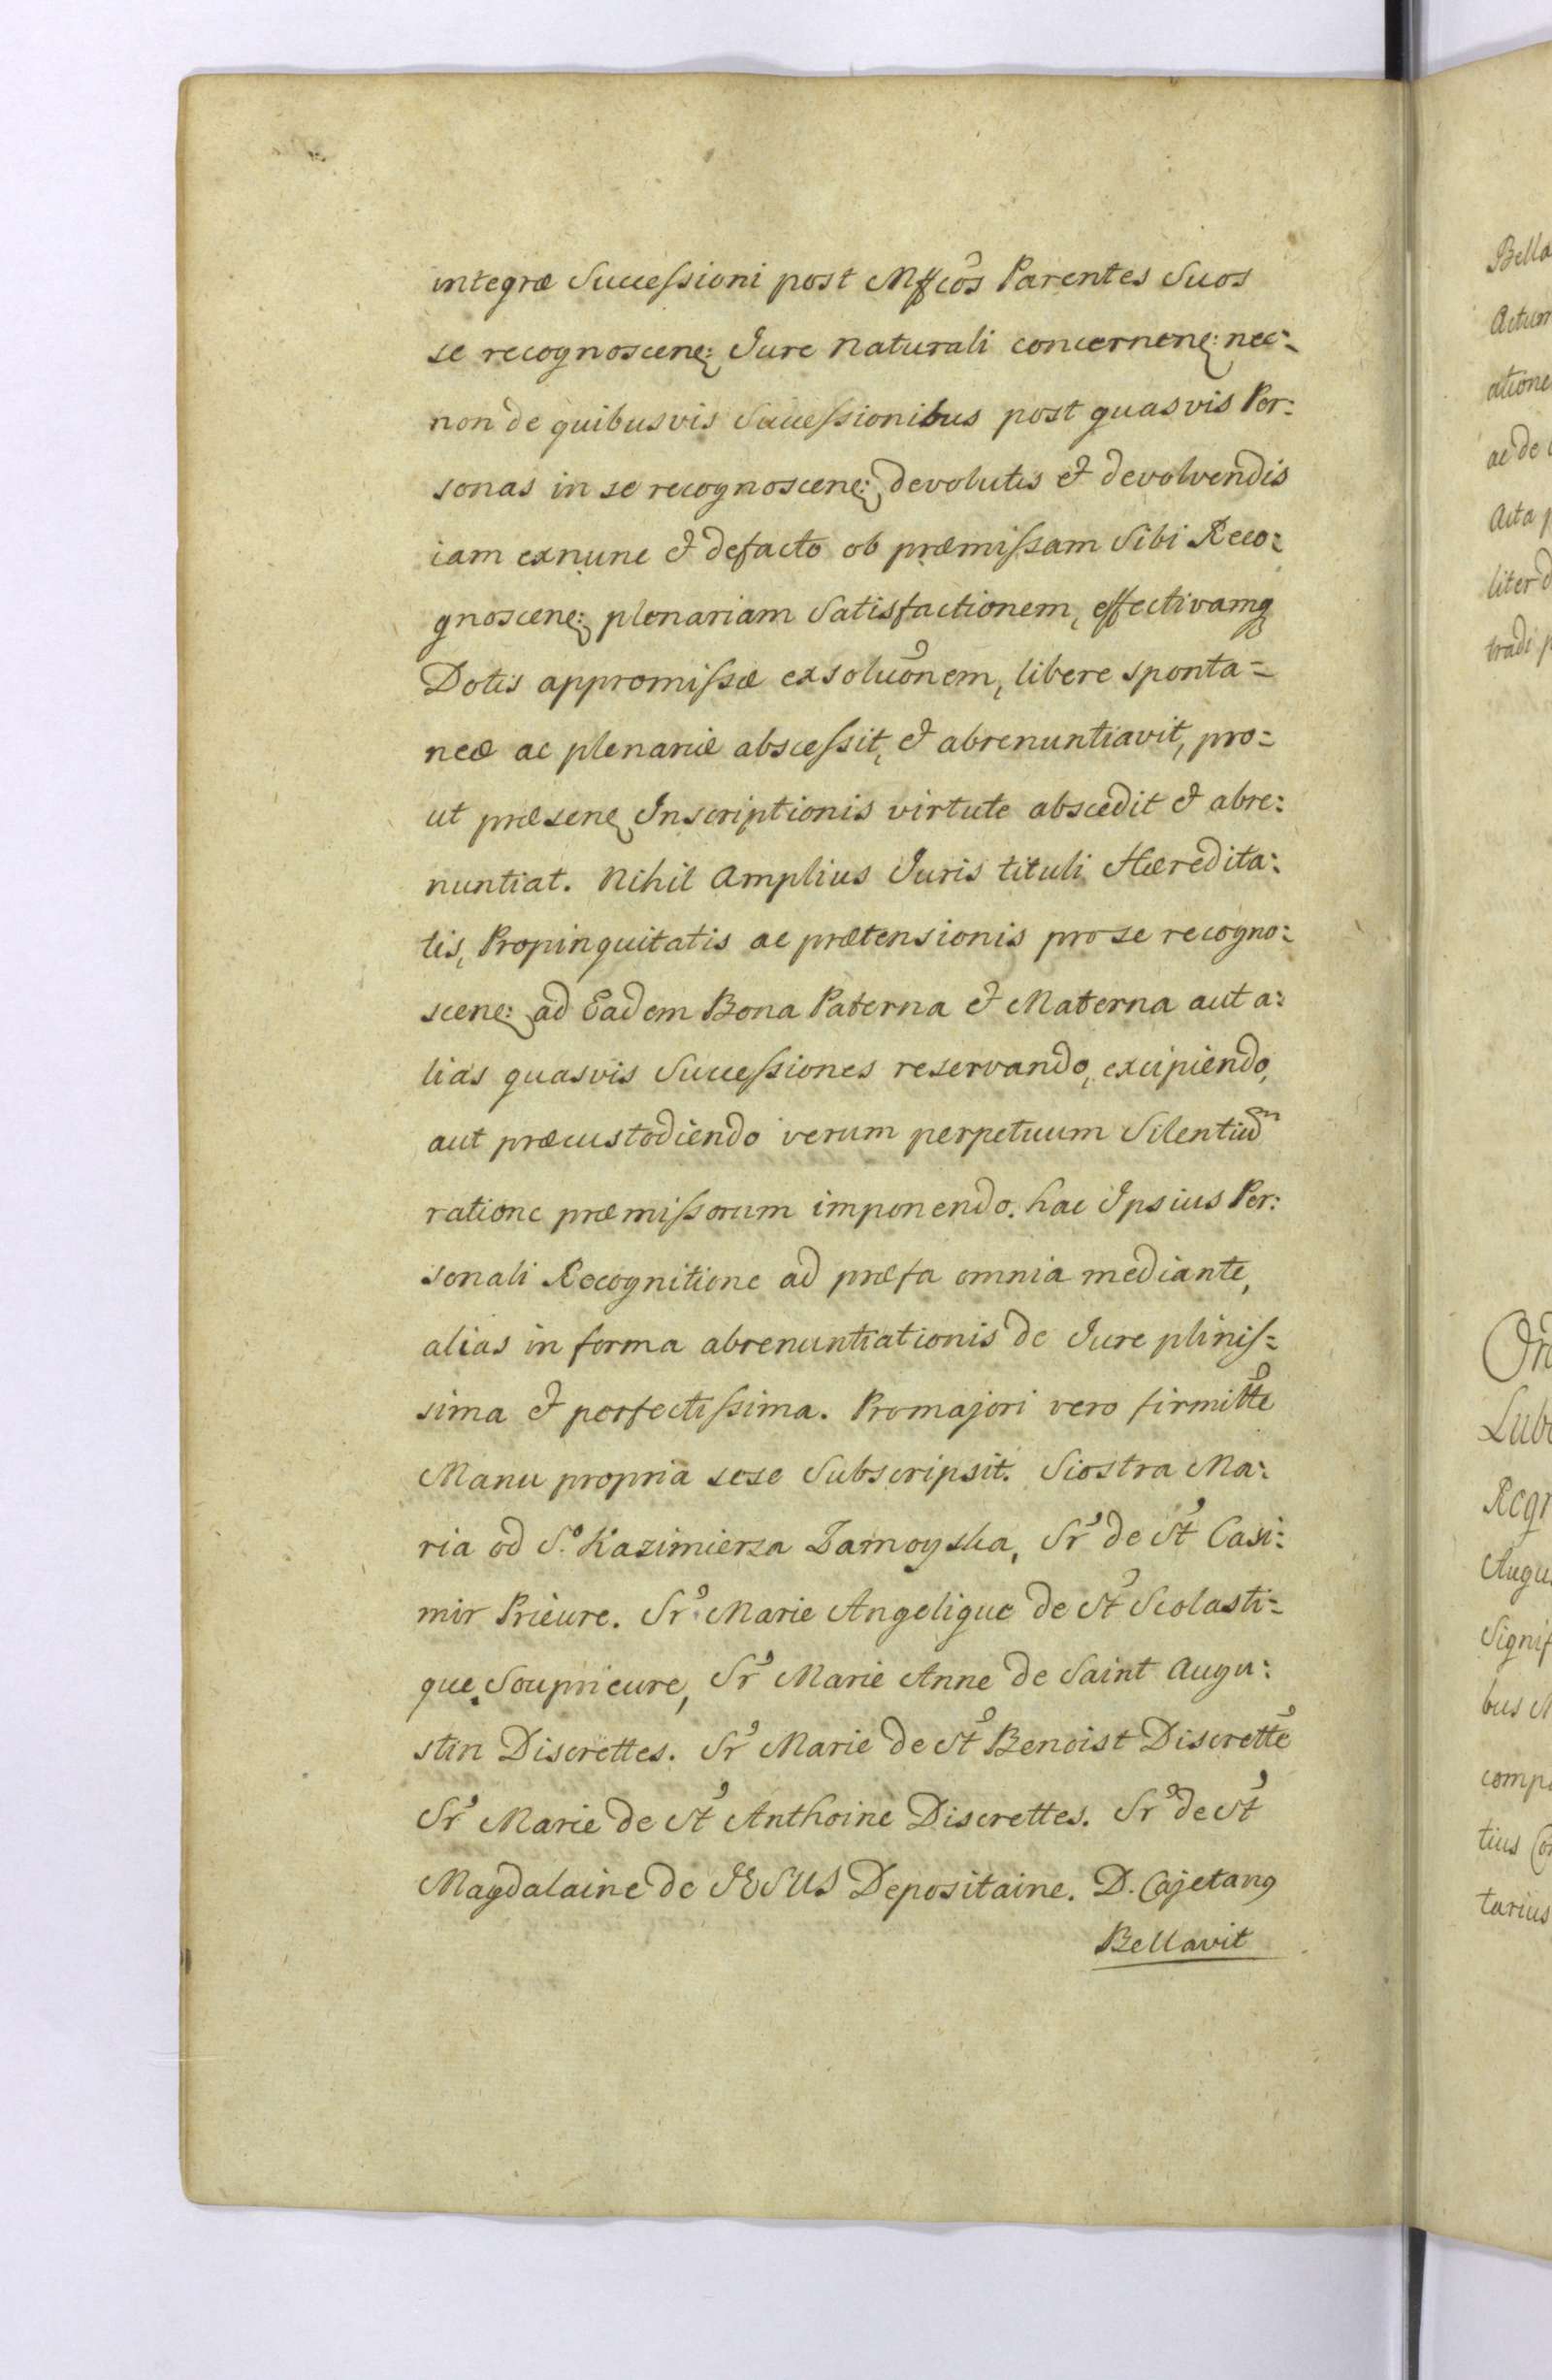 integræ Succeſsioni post Mffcos Parentes Suos
se recognoscen: Jure Naturali concernen: nec-
non de quibusvis Succeſsionibus post quasvis Per:
sonas in se recognoscen: devolutis & devolvendis
iam exnunc & defacto ob præmiſsam Sibi Reco:
gnoscen: plenariam Satisfactionem, effectivamq
Dotis appromiſsæ exsoluonem, libere sponta=
neæ ac plenariæ absceſsit, & abrenuntiavit, pro=
ut præsen Inscriptionis virtute abscedit & abre:
nuntiat. Nihil Amplius Juris tituli Hæredita:
tis, Propinquitatis ac prætensionis pro se recogno:
scen: ad Eadem Bona Paterna & Materna aut a:
lias quasvis Succeſsiones reservando, excipiendo,
aut præcustodiendo verum perpetuum Silentium
ratione præmiſsorum imponendo. hac Ipsius Per:
sonali Recognitione ad præfa omnia mediante,
alias in forma abrenuntiationis de Jure pliniſ=
sima & perfectiſsima. Pro majori vero firmitte
Manu propria sese Subscripsit. Siostra Ma:
ria od S.º Kazimierza Zamoyska, Sr de St Casi:
mir Prieure. Sr Marie Angelique de St Scolasti=
que Souprieure, Sr Marie Anne de Saint Augu:
stin Discrettes. Sr Marie de St Benoist Discrette
Sr Marie de St Anthoine Discrettes. Sr de St
Magdalaine de JESUS Depositaine. D. Cajetang
Bellavit
Bella
Actum
atione
ac de
Acta p
liter d
tradi p
Ord
Lubl
Regn
Augu
Signif
bus M
comp
tius Co
tarius